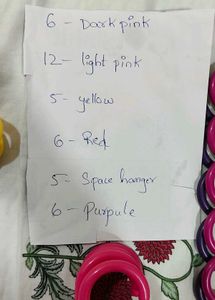 6 - Dark pink
12 - light pink
5 - yellow
6 - Red
5 - Space hanger
6 - Purpule